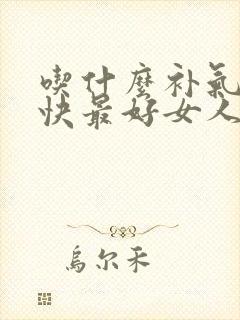 喫什麼补氣
快最好女人
烏尔禾